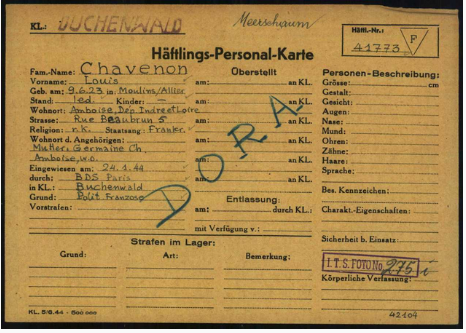 KL.: BUCHENWALD Meerschaum Häftl.-Nr.: 41773 F
Häftlings-Personal-Karte
Fam.-Name: Chavenon
Vorname: Louis
Geb. am: 9.6.23 in: Moulins/Allier
Stand: led. Kinder: —
Wohnort: Amboise, Dep. Indre et Loire
Strasse: Rue Beaubrun 5
Religion: r.k. Staatsang: Frankr.
Wohnort d. Angehörigen:
Mutter: Germaine Ch.
Amboise, w.o.
Eingewiesen am: 24.1.44
durch: BDS Paris
in KL.: Buchenwald
Grund: Polit. Franzose
Vorstrafen:
Überstellt
am: an KL.
am: an KL.
am: an KL.
am: an KL.
am: an KL.
am: an KL.
DORA
Entlassung:
am: durch KL.:
mit Verfügung v.:
Personen-Beschreibung:
Grösse: cm
Gestalt:
Gesicht:
Augen:
Nase:
Mund:
Ohren:
Zähne:
Haare:
Sprache:
Bes. Kennzeichen:
Charakt.-Eigenschaften:
Sicherheit b. Einsatz:
I.T.S. FOTO No 275 i
Körperliche Verfassung:
Strafen im Lager:
Grund: Art: Bemerkung:
KL. 5/6.44 - 500 000
42104